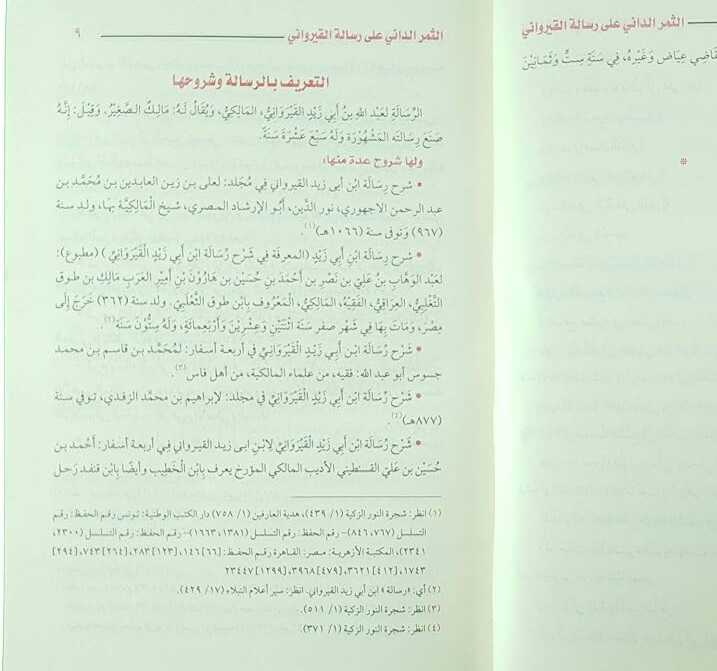 الثمر الداني على رسالة القيرواني
قاضي عِيَاض وَغَيْرُه، فِي سَنَةِ سِتٍّ وَثَمَانِيْنَ
*
الثمر الداني على رسالة القيرواني
٩
التعريف بالرسالة وشروحها
الرِّسَالَةِ لعَبْدِ اللهِ بنُ أَبِي زَيْدٍ القَيْرَوَانِيِّ، المَالِكِيِّ، وَيُقَالُ لَهُ: مَالِكٌ الصَّغِيْرُ. وَقِيْلَ: إِنَّهُ
صَنَعَ رِسَالته المَشْهُوْرَة وَلَهُ سَبْعَ عَشْرَةَ سَنَةً.
ولها شروح عدة منها:
• شرح رِسَالَة ابْن أبى زيد القيرواني فِي مُجَلد: لعلى بن زين العابدين بن مُحَمَّد بن
عبد الرحمن الاجهوري، نور الدَّين، أَبُو الإرشاد المصري، شَيخ الْمَالِكِيَّة بهَا، ولد سنة
(٩٦٧) وَتوفى سنة (١٠٦٦هـ)(١).
• شرح رِسَالَة ابْن أبي زيد (المعرفة في شَرْح رِسَالَة ابْن أَبِي زَيْدٍ الْقَيْرَوَانِيِّ) (مطبوع):
لعَبْد الوَهَّابِ بنُ عَلِيّ بن نَصْر بن أَحْمَدَ بنِ حُسَيْن بن هَارُوْنَ بن أَمِيْرِ العَرَبِ مَالِك بن طوق
التَّغْلِبِيُّ، العِرَاقِيُّ، الفَقِيْهُ، المَالِكِيُّ، الْمَعْرُوف بِابْن طوق الثَّعْلَبِيّ. ولد سنة (٣٦٢) خَرَجَ إِلَى
مِصْرَ، وَمَاتَ بِهَا فِي شَهْرِ صفر سَنَة اثْنَتَيْنِ وَعِشْرِيْنَ وَأَرْبَعمائَةٍ، وَلَهُ سِتُّونَ سَنَة(٢).
• شَرْح رِسَالَة ابْن أَبِي زَيْدٍ الْقَيْرَوَانِيّ في أربعة أسفار: لمُحَمَّد بن قاسم بن محمد
جسوس أبو عبد الله: فقيه، من علماء المالكية، من أهل فاس(٣).
• شَرْح رِسَالَة ابْن أَبِي زَيْدٍ الْقَيْرَوَانِيّ في مجلد: لإبراهيم بن محمد الزفدي، توفي سنة
(٨٧٧هـ)(٤).
• شَرْح رِسَالَة ابْن أَبِي زَيْدٍ الْقَيْرَوَانِيِّ لِابْنِ ابى زيد القيرواني فِي أَرْبَعَة أسفار: أَحْمد بن
حُسَيْن بن عَليّ القسنطيني الأديب المالكي المؤرخ يعرف بِابْن الْخَطِيب وأيضًا بِابْن قنفد رَحل
(١) انظر: شجرة النور الزكية (١/ ٤٣٩)، هدية العارفين (١/ ٧٥٨) دار الكتب الوطنية: تونس رقم الحفظ: رقم
التسلسل (٧٦٧، ٨٤٦)– رقم الحفظ: رقم التسلسل (١٣٨١، ١٦٦٣)– رقم الحفظ: رقم التسلسل (٢٣٠٠،
٢٣٤١)، المكتبة الأزهرية: مصر: القاهرة رقم الحفظ: [٦٦] ١٤٦، [١٢٣] ٢٨٣، [٢٦٤] ٧٤٣، [٢٩٤]
١٧٤٣، [٤١٢] ٣٦٢١، [٤٧٩] ٣٩٦٨، [١٢٩٩] ٢٣٤٤٧
(٢) أي: «رسالة» ابن أبي زيد القيرواني. انظر: سير أعلام النبلاء (١٧/ ٤٢٩).
(٣) انظر: شجرة النور الزكية (١/ ٥١١).
(٤) انظر: شجرة النور الزكية (١/ ٣٧١).